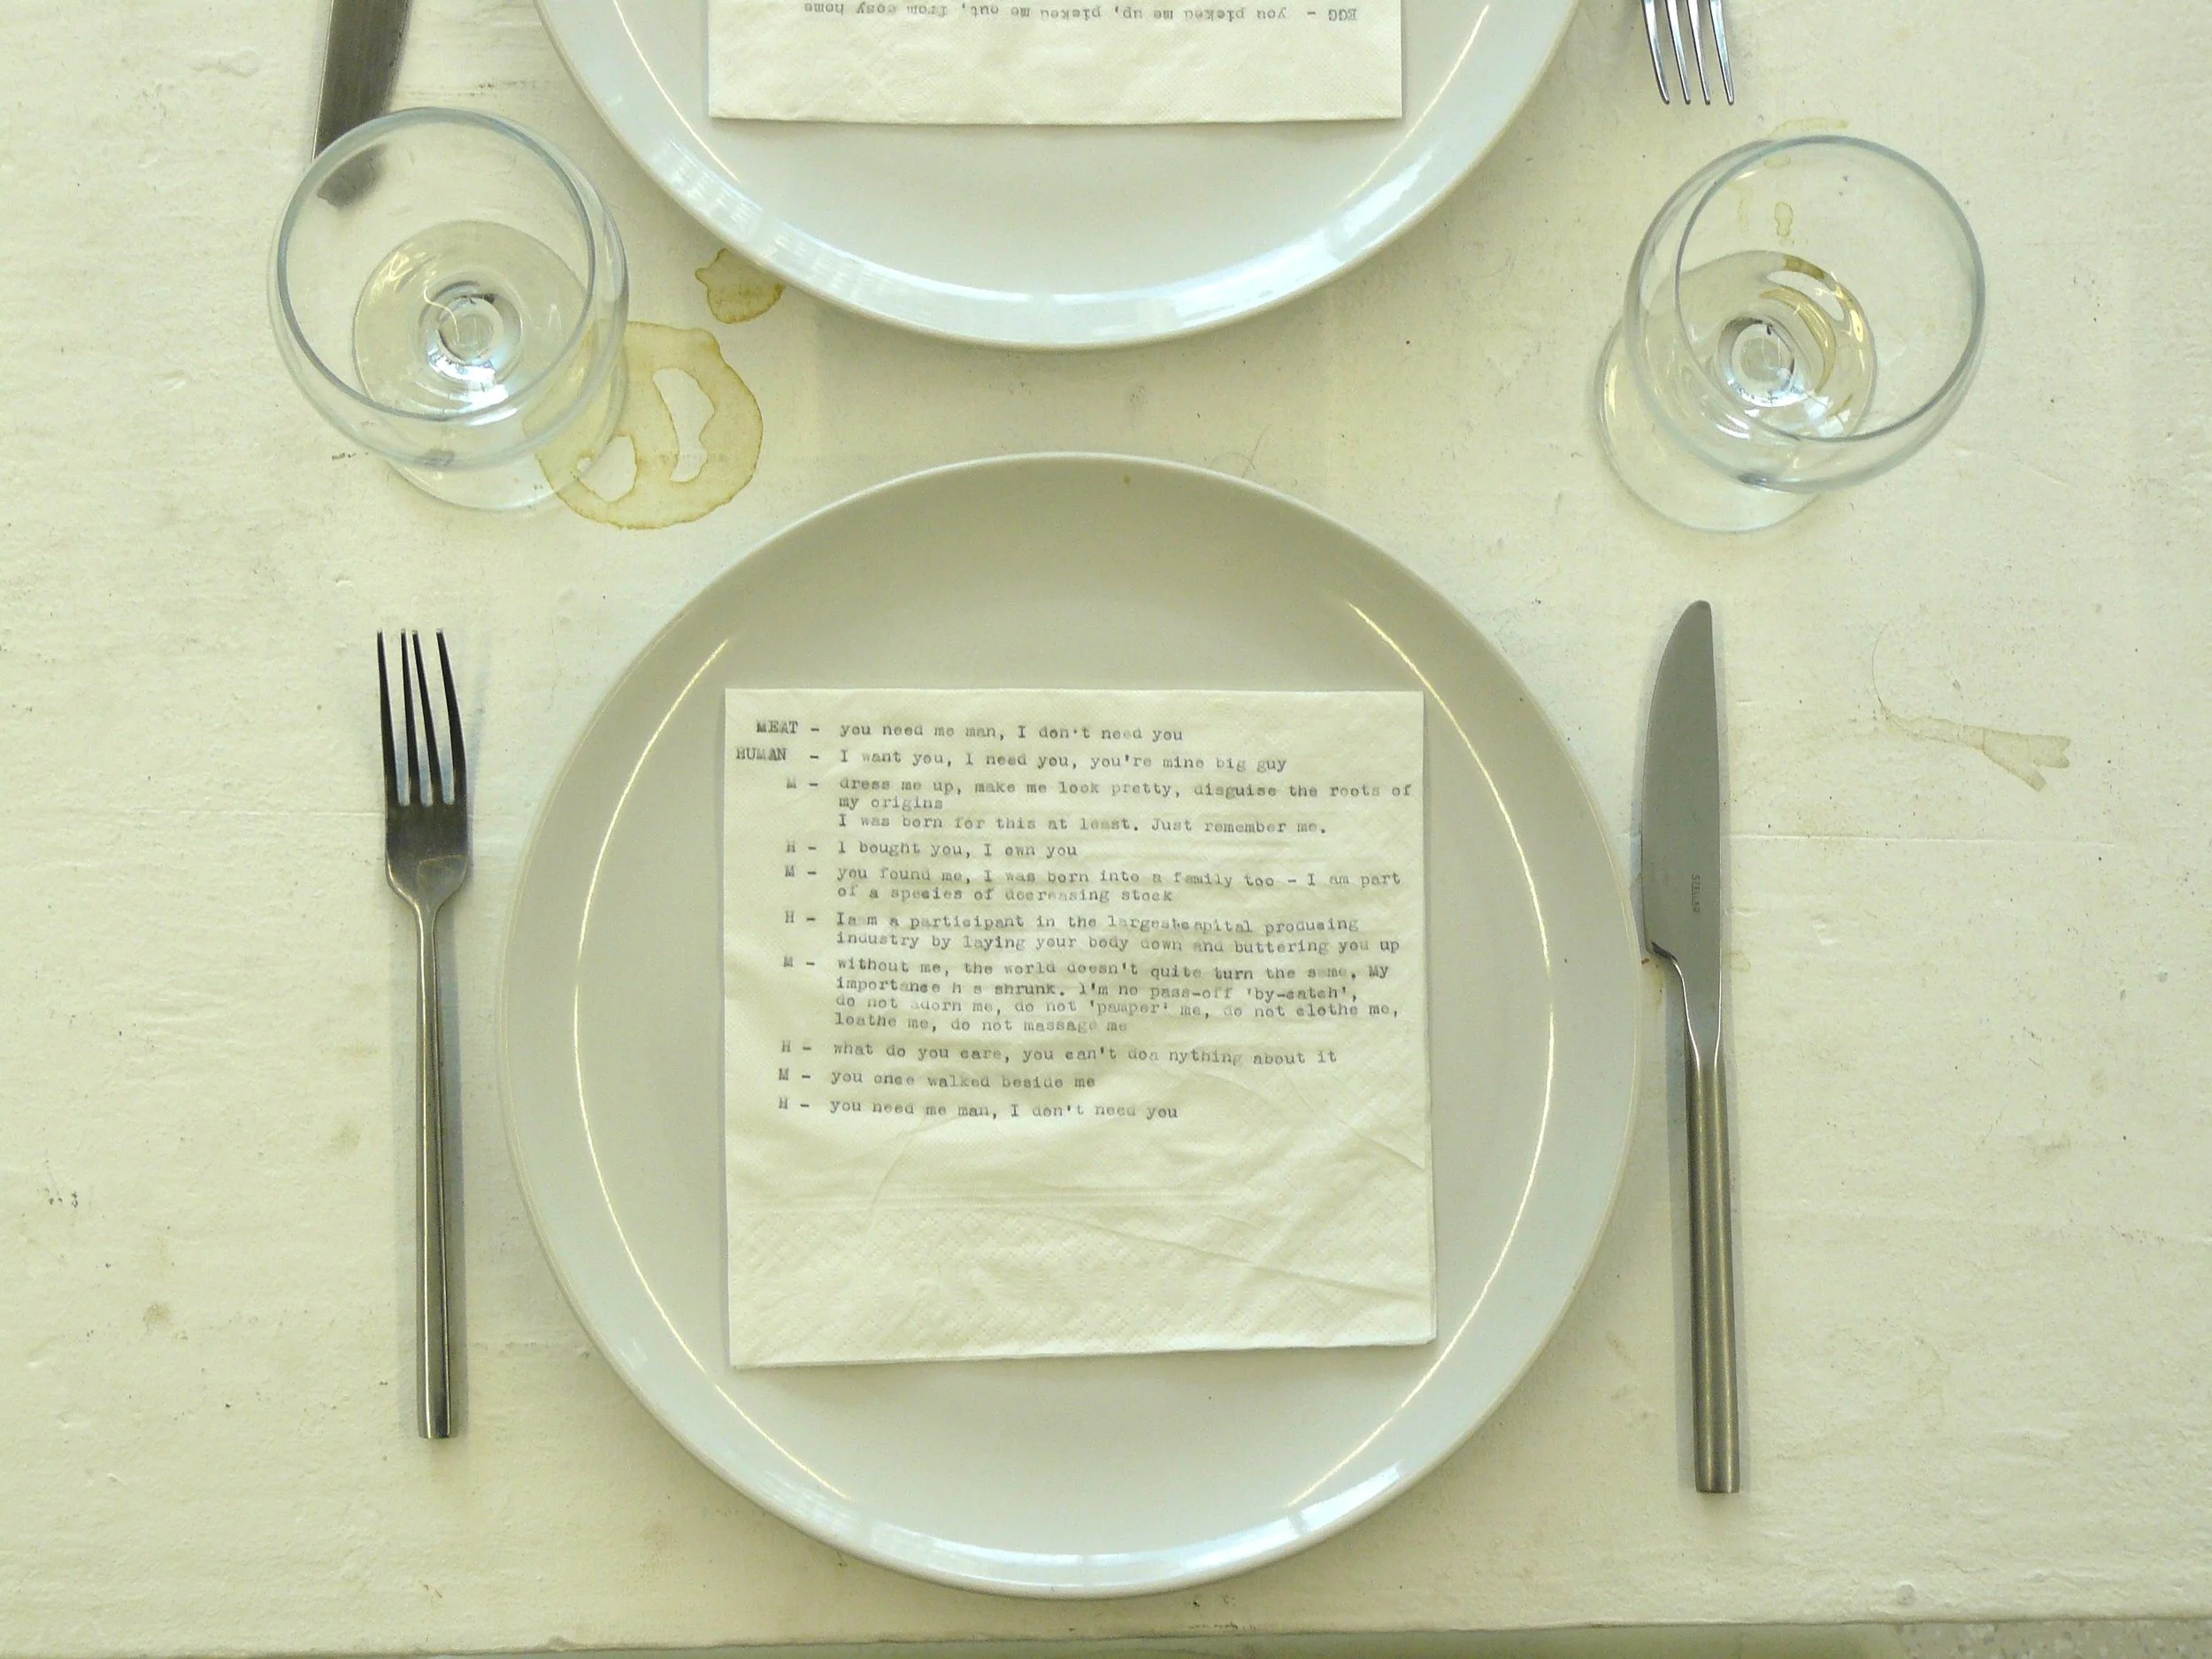 EGG - you picked me up, picked me out, from cosy home
MEAT - you need me man, I don't need you
HUMAN - I want you, I need you, you're mine big guy
M - dress me up, make me look pretty, disguise the roots of
my origins
I was born for this at least. Just remember me.
H - I bought you, I own you
M - you found me, I was born into a family too - I am part
of a species of decreasing stock
H - Ia m a participant in the largestcapital producing
industry by laying your body down and buttering you up
M - without me, the world doesn't quite turn the same. My
importance h s shrunk. I'm no pass-off 'by-catch',
do not adorn me, do not 'pamper' me, do not clothe me,
loathe me, do not massage me
H - what do you care, you can't doa nything about it
M - you once walked beside me
H - you need me man, I don't need you
STELLAR